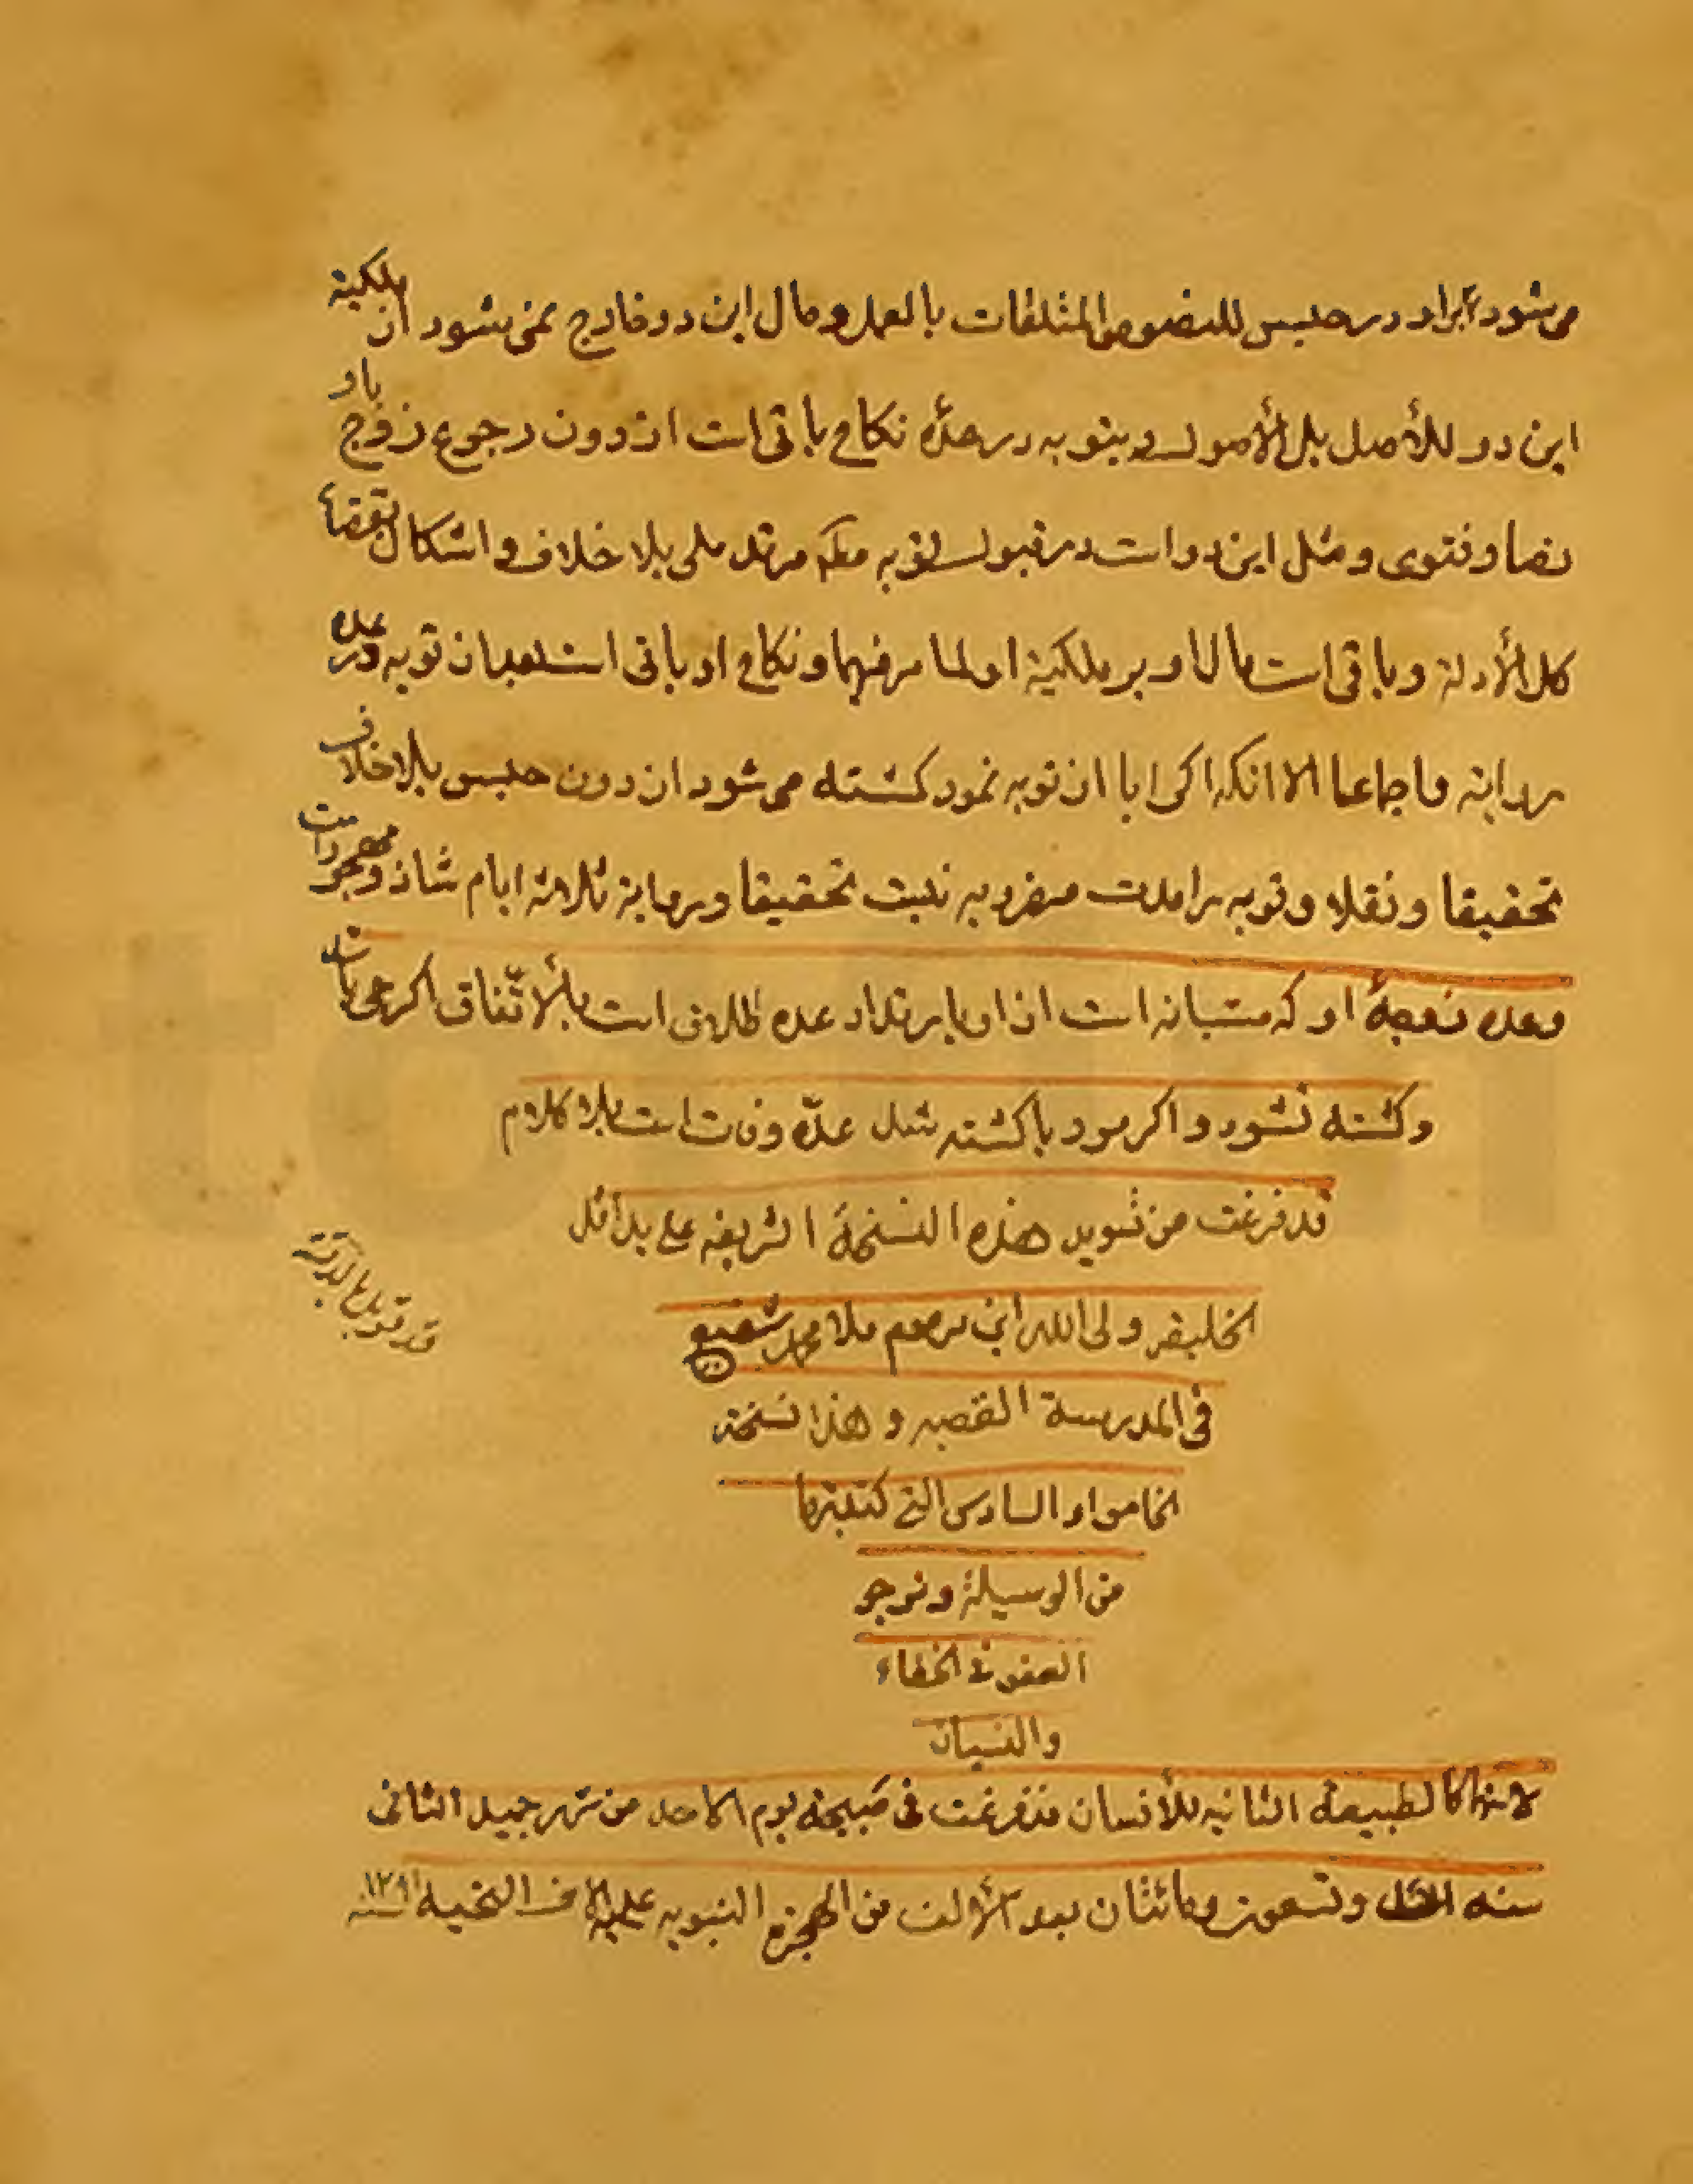 می‌شود ایراد در حبس للنصوص المتلقات بالعمل و مال این دو خارج نمی‌شود از ملکیة
این دو للأصل بل الأصول و بتوبه در عدّه نکاح باقی است از دون رجوع زوج باو
نصا و فتوی و مثل این دو است در قبول توبه مرتد ملی بلا خلاف و اشکال
کل الأدلة و باقی است مال او بر ملکیة او و نکاح او باقی است بعد از توبه در عده
روایة و اجماعا الا انکه اگر ابا از توبه نمود کشته می‌شود از دون حبس بلا خلاف
تحقیقا و نقلا و توبه را مدت نیست تحقیقا و روایة ثلاثة ایام شاذ و مهجور است
وعده زوجهٔ او که است از او بارتداد عده طلاق است بالأتّفاق اکر می
و کشته نشود و اکر بمرد یا کشته شد عدّه وفات است بلا کلام
قد فرغت من تسوید هذه النسخة الشریفه علی ید اقل
الخلیقه ولی الله ابن مرحوم ملا محمد شفیع
فی المدرسة القصبه و هذا نسخة
الخامس او السادس التی کتبتها
من الوسیلة و نرجو
العفو عن الخطاء
والنسیان
لانهما کالطبیعة الثانیه للأنسان قد فرغت فی صبیحة یوم الاحد من شهر جمید الثانی
سنه و تسعون و مائتان بعد الألف من الهجرة النبویه علیه الاف التحیه ۱۲۹۱